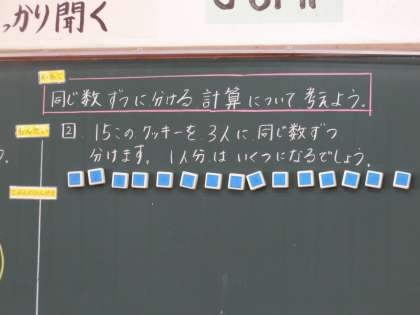 っかり聞く
めあて
同じ数ずつに分ける計算について考えよう。
もんだい
2 15このクッキーを3人に同じ数ずつ
分けます。1人分はいくつになるでしょう。